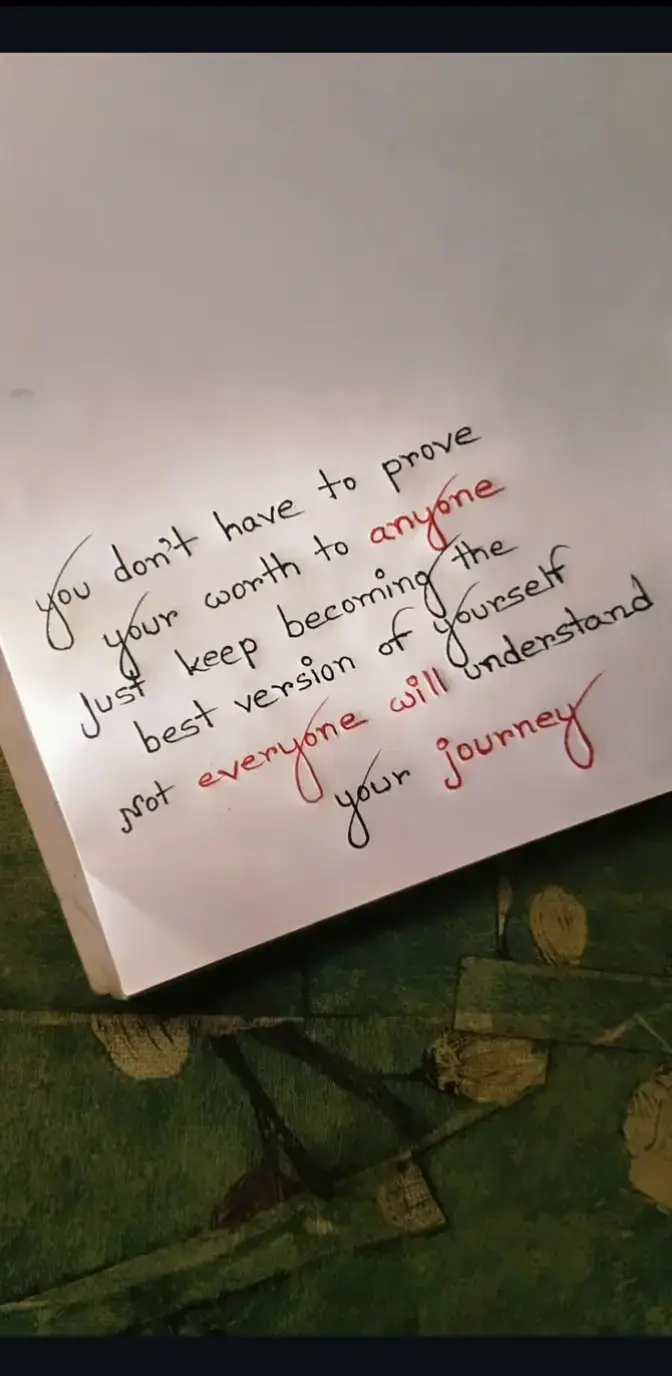 you don't have to prove
your worth to anyone
Just keep becoming the
best version of yourself
Not everyone will understand
your journey